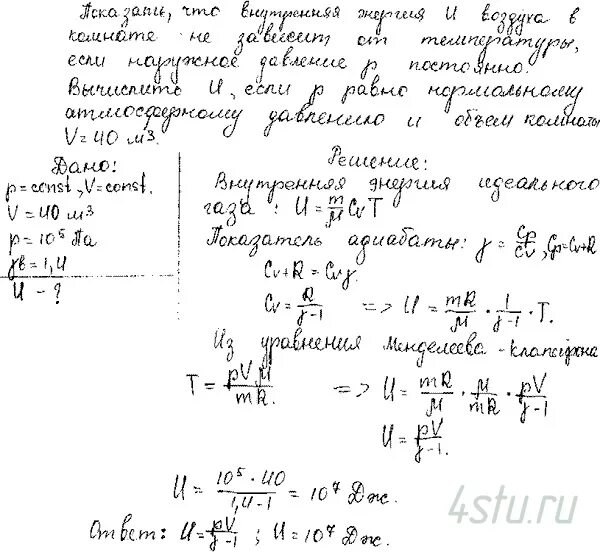 Показать, что внутренняя энергия U воздуха в
комнате не зависит от температуры,
если наружное давление p постоянно.
Вычислить U, если p равно нормальному
атмосферному давлению и объем комнаты
V=40 м³.
Дано:
p=const, V=const.
V=40 м³
p=10⁵ Па
γв=1,4
U - ?
Решение:
Внутренняя энергия идеального
газа: U=m/M CvT
Показатель адиабаты: γ=Cp/Cv, Cp=Cv+R
Cv+R=Cvγ.
Cv=R/γ-1 => U=mR/M · 1/γ-1 · T.
Из уравнения Менделеева-Клапейрона
T=pVM/mR. => U=mR/M · M/mR · pV/γ-1
U=pV/γ-1.
U=10⁵·40/1,4-1=10⁷ Дж.
Ответ: U=pV/γ-1; U=10⁷ Дж.
4stu.ru